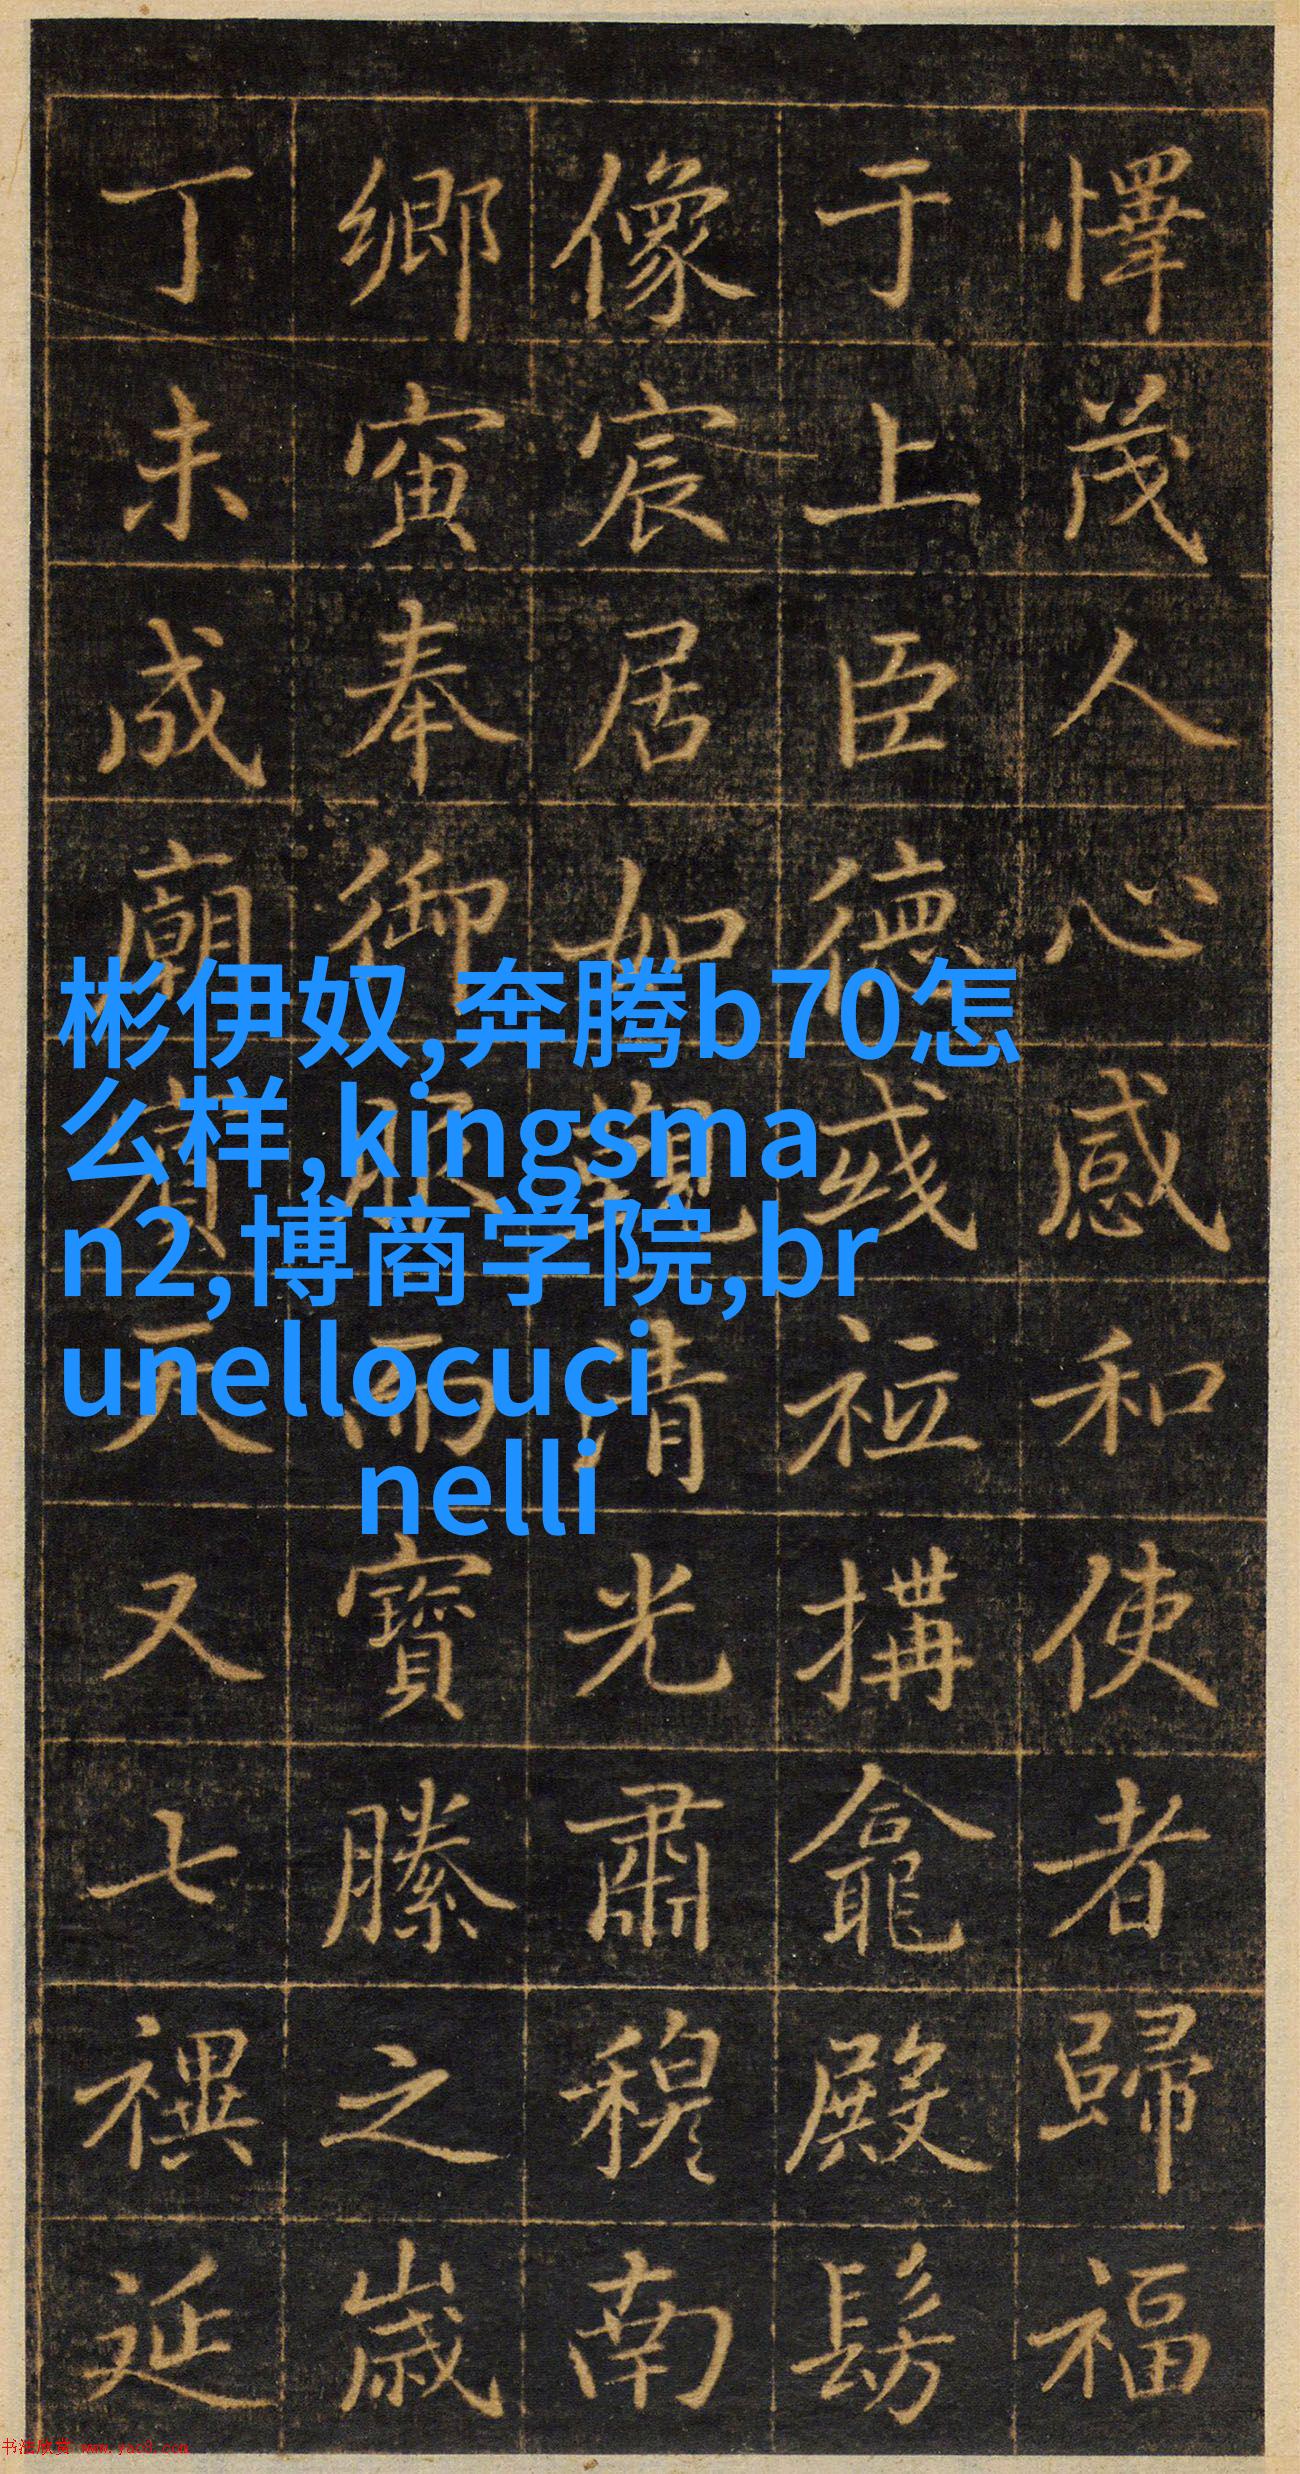 懌茂人心感和使者歸福
于上臣德搆龕殿髣
像宸居如觀清光肅穆南
鄉寅奉御寶縢之歲
丁未成廟天又七禩延
彬伊奴,奔腾b70怎
么样,kingsma
n2,博商学院,br
unellocuci
nelli
书法欣赏 www.yac8.com